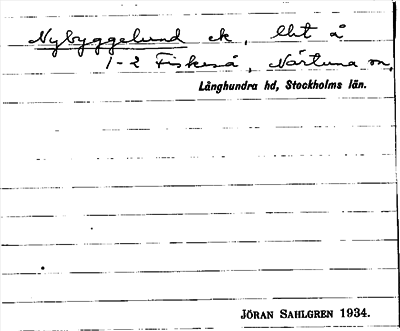 Nybyggelund ek, lht å
1-2 Fiskeså, Närtuna sn,
Långhundra hd, Stockholms län.
JÖRAN SAHLGREN 1934.